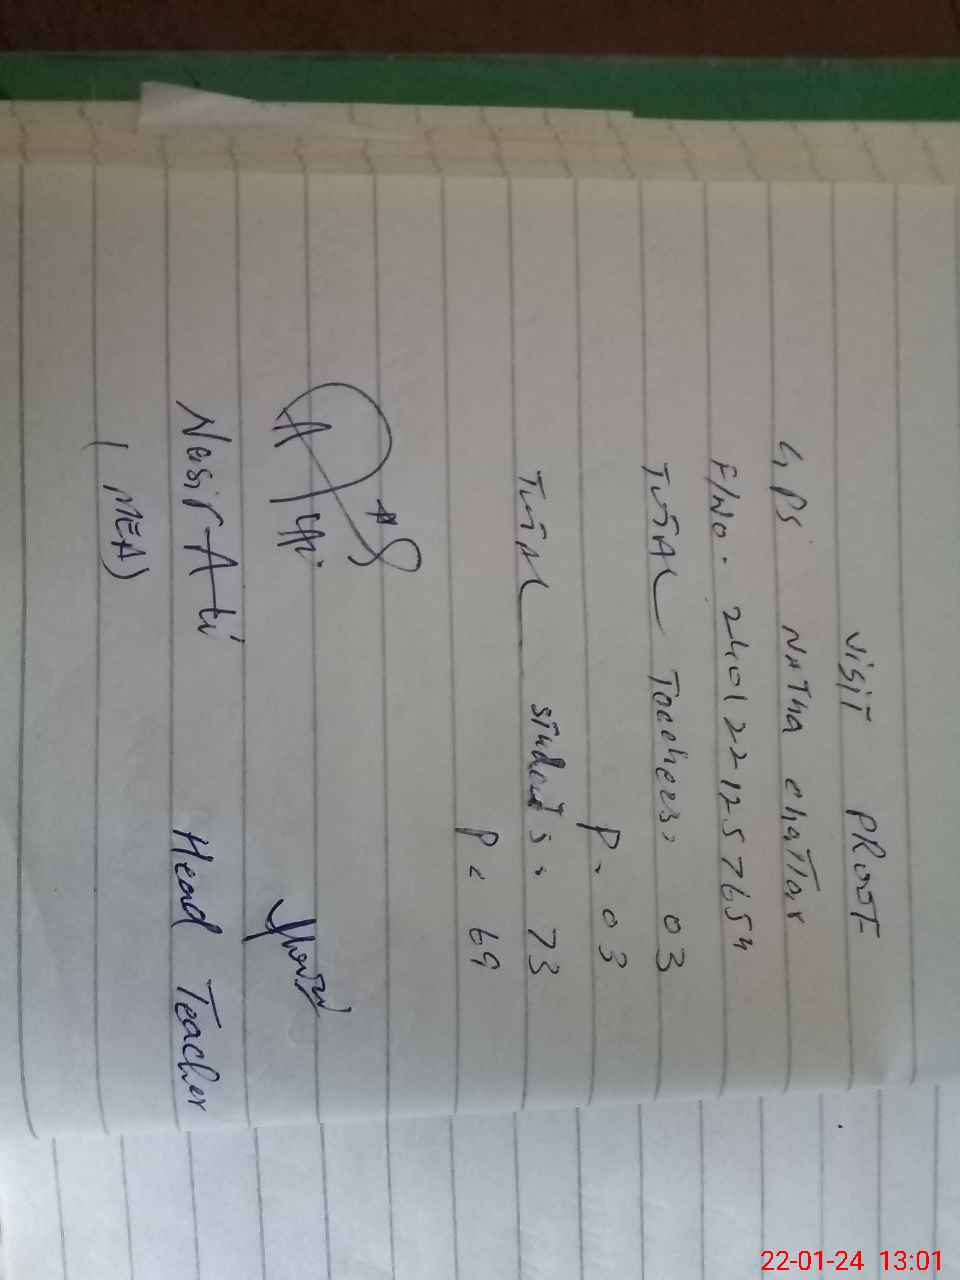 Visit Proof
GPS Natha Chattar
F/No. 2401221257654
Total Teachers: 03
P. 03
Total students: 73
P: 69
Nasir Ali Head Teacher
(MEA)
22-01-24 13:01